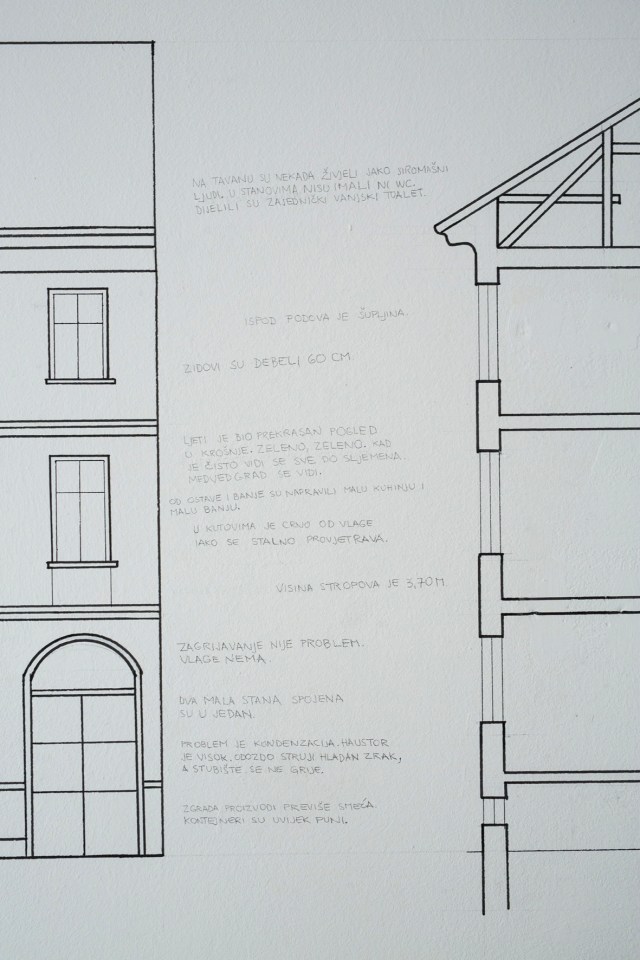 NA TAVANU SU NEKADA ŽIVJELI JAKO SIROMAŠNI
LJUDI. U STANOVIMA NISU IMALI NI WC.
DIJELILI SU ZAJEDNIČKI VANJSKI TOALET.
ISPOD PODOVA JE ŠUPLJINA.
ZIDOVI SU DEBELI 60 CM.
LJETI JE BIO PREKRASAN POGLED
U KROŠNJE. ZELENO, ZELENO. KAD
JE ČISTO VIDI SE SVE DO SLJEMENA.
MEDVJEDGRAD SE VIDI.
OD OSTAVE I BANJE SU NAPRAVILI MALU KUHINJU I
MALU BANJU.
U KUTOVIMA JE CRNO OD VLAGE
IAKO SE STALNO PROVJETRAVA.
VISINA STROPOVA JE 3,70 M
ZAGRIJAVANJE NIJE PROBLEM.
VLAGE NEMA.
DVA MALA STANA SPOJENA
SU U JEDAN.
PROBLEM JE KONDENZACIJA. HAUSTOR
JE VISOK. ODOZDO STRUJI HLADAN ZRAK,
A STUBIŠTE SE NE GRIJE.
ZGRADA PROIZVODI PREVIŠE SMEĆA.
KONTEJNERI SU UVIJEK PUNI.